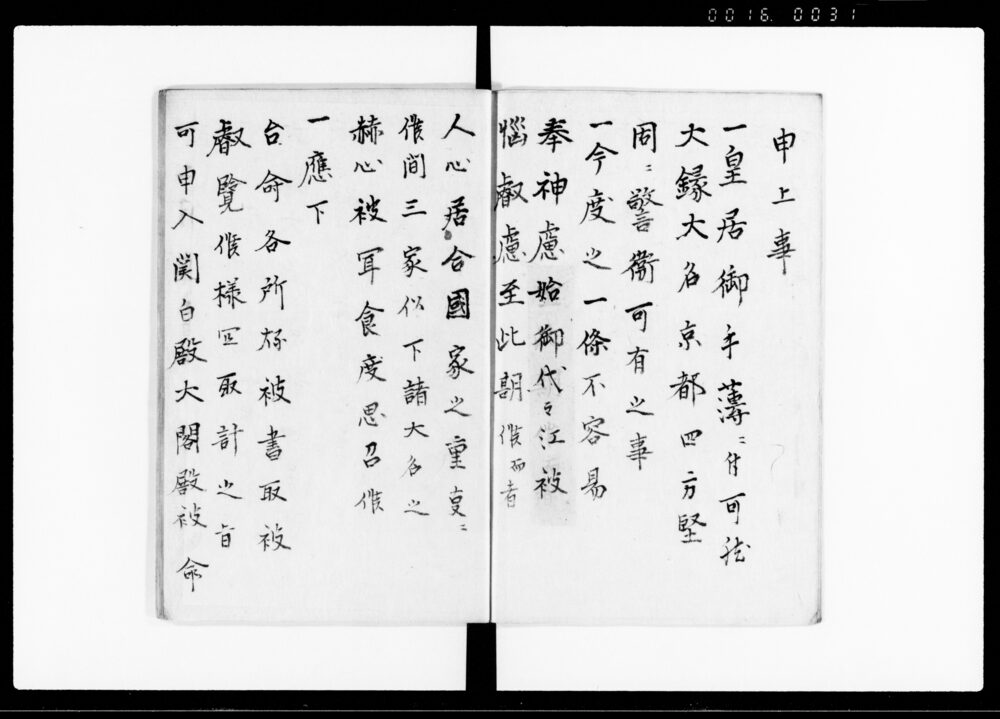 0016. 0031
申上事
一皇居御手薄ニ付可然
大録大名京都四方堅
固ニ警衛可有之事
一今度之一條不容易
奉神慮始御代々江被
悩叡慮至此期候而者
人心居合國家之重事ニ
候間三家以下諸大名之
赫心被
食度思召候
一應下
台命各所存被書取被
叡覧候様
取計之旨
可申入関白殿大閤殿被命